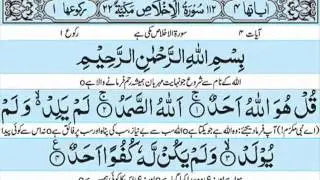 اٰیاتها ۴ ۱۱۲ سُوْرَةُ الْاِخْلَاصِ مَکِّیَّةٌ ۲۲ رکوعها ۱
آیات ۴ سورۃ الاخلاص مکی ہے رکوع ۱
بِسْمِ اللّٰهِ الرَّحْمٰنِ الرَّحِیْمِ
اللہ کے نام سے شروع جو نہایت مہربان ہمیشہ رحم فرمانے والا ہے
قُلْ هُوَ اللّٰهُ اَحَدٌ ۚ۝۱ اَللّٰهُ الصَّمَدُ ۚ۝۲ لَمْ یَلِدْ ۙ۬ وَ لَمْ
(اے نبی مکرم!) آپ فرما دیجئے: وہ اللہ ہے جو یکتا ہے اللہ سب سے بے نیاز، سب کی پناہ اور سب پر فائق ہے نہ اس سے کوئی پیدا
یُوْلَدْ ۙ۝۳ وَ لَمْ یَكُنْ لَّهٗ كُفُوًا اَحَدٌ ۠۝۴